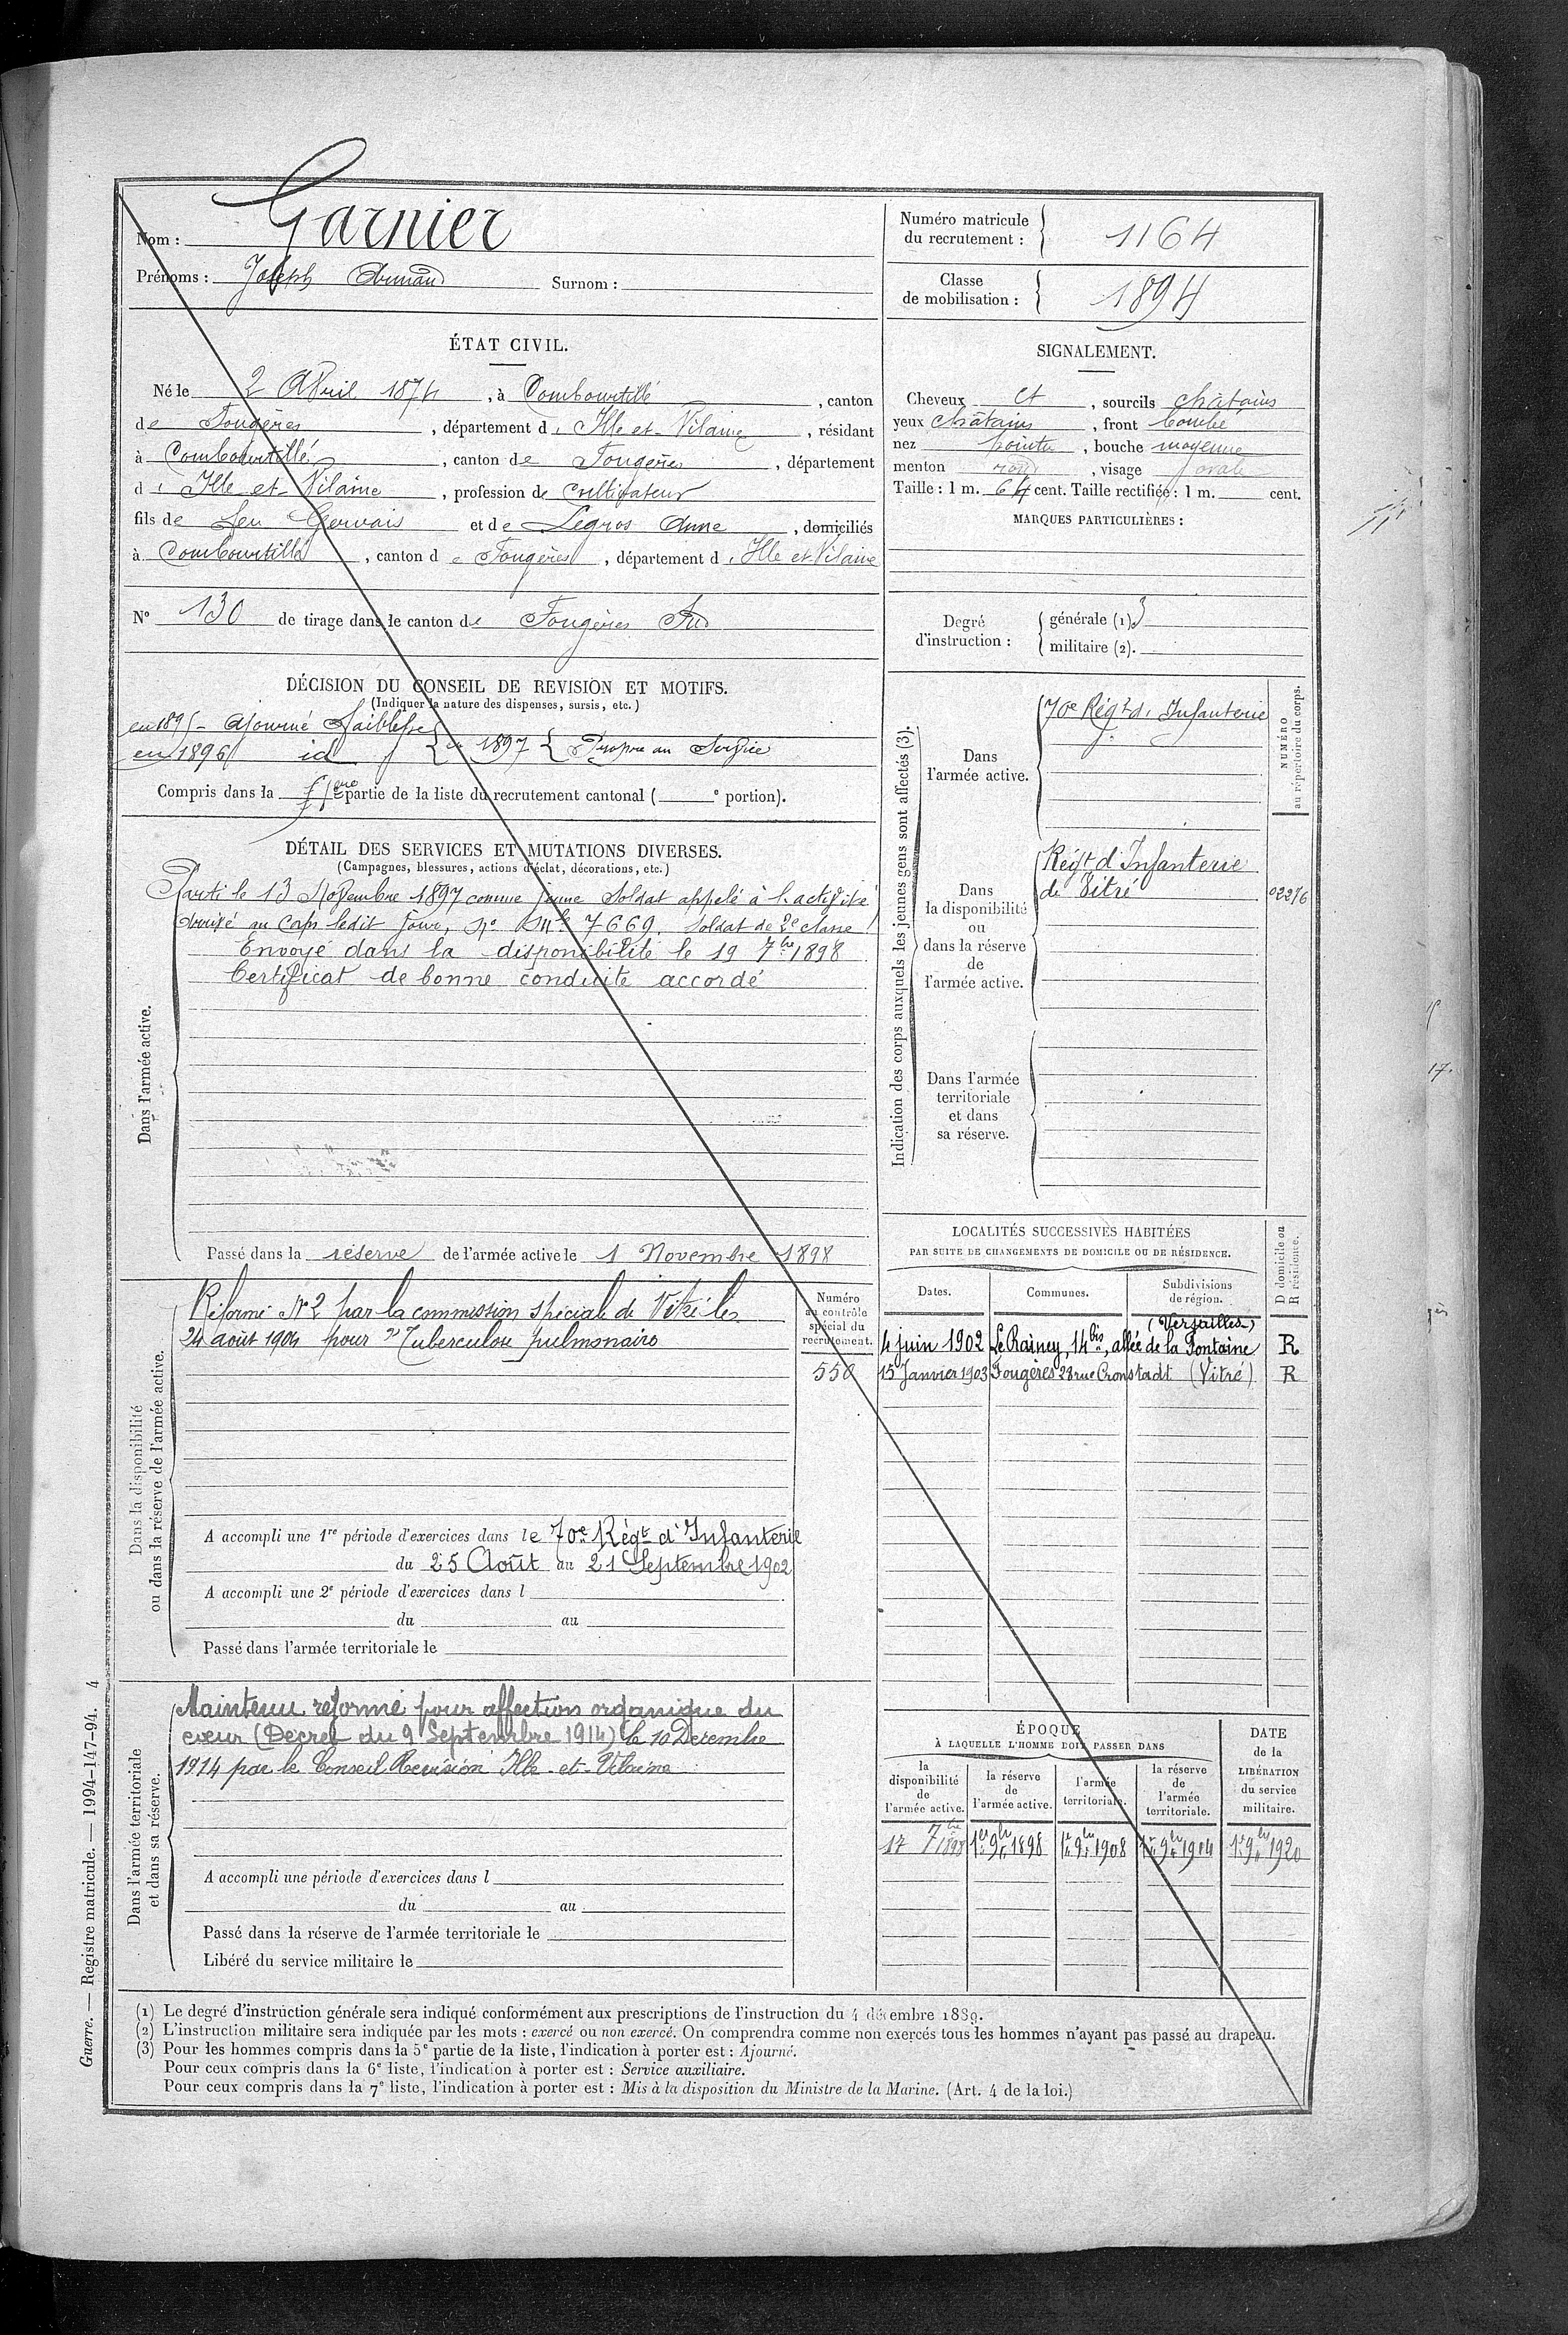 Nom : Garnier
Prénoms : Joseph Armand Surnom :
Numéro matricule du recrutement : 1164
Classe de mobilisation : 1894
ÉTAT CIVIL.
Né le 2 Avril 1874, à Combourtillé, canton
de Fougères, département d'Ille et Vilaine, résidant
à Combourtillé, canton de Fougères, département
d'Ille et Vilaine, profession de Cultivateur
fils de feu Gervais et de Legros Anne, domiciliés
à Combourtillé, canton de Fougères, département d'Ille et Vilaine
N° 130 de tirage dans le canton de Fougères Sud
SIGNALEMENT.
Cheveux et, sourcils châtains
yeux châtains, front bombé
nez pointu, bouche moyenne
menton rond, visage ovale
Taille : 1 m. 64 cent. Taille rectifiée : 1 m. cent.
MARQUES PARTICULIÈRES :
Degré d'instruction : générale (1). 3
militaire (2).
DÉCISION DU CONSEIL DE REVISION ET MOTIFS.
(Indiquer la nature des dispenses, sursis, etc.)
en 1895 - ajourné faiblesse
en 1896 id en 1897 Propre au Service
Compris dans la 1ere partie de la liste du recrutement cantonal ( e portion).
DÉTAIL DES SERVICES ET MUTATIONS DIVERSES.
(Campagnes, blessures, actions d'éclat, décorations, etc.)
Dans l'armée active.
Parti le 13 Novembre 1897 comme jeune Soldat appelé à l'activité
Arrivé au Corps ledit jour, No Mle 7669. Soldat de 2e classe
Envoyé dans la disponibilité le 19 7bre 1898
Certificat de bonne conduite accordé
Passé dans la réserve de l'armée active le 1 Novembre 1898
Indication des corps auxquels les jeunes gens sont affectés (3).
NUMÉRO au répertoire du corps.
Dans l'armée active.
70e Régt d'Infanterie
Dans la disponibilité ou dans la réserve de l'armée active.
Régt d'Infanterie
de Vitré
02276
Dans l'armée territoriale et dans sa réserve.
Dans la disponibilité ou dans la réserve de l'armée active.
Réformé No 2 par la commission spéciale de Vitré le
24 août 1904 pour "Tuberculose pulmonaire
Numéro au contrôle spécial du recrutement.
550
A accompli une 1re période d'exercices dans le 70e Régt d'Infanterie
du 25 Août au 21 Septembre 1902
A accompli une 2e période d'exercices dans l
du au
Passé dans l'armée territoriale le
LOCALITÉS SUCCESSIVES HABITÉES
PAR SUITE DE CHANGEMENTS DE DOMICILE OU DE RÉSIDENCE.
Dates. Communes. Subdivisions de région. D domicile ou R résidence.
(Versailles)
4 juin 1902 Le Rainey, 14 bis, allée de la Fontaine R
15 Janvier 1903 Fougères 28 rue Cronstadt (Vitré) R
Dans l'armée territoriale et dans sa réserve.
Maintenu réformé pour affection organique du
cœur (Décret du 9 Septembre 1914) le 10 Décembre
1914 par le Conseil Revision Ille-et-Vilaine
A accompli une période d'exercices dans l
du au
Passé dans la réserve de l'armée territoriale le
Libéré du service militaire le
ÉPOQUE
À LAQUELLE L'HOMME DOIT PASSER DANS
la disponibilité de l'armée active. la réserve de l'armée active. l'armée territoriale. la réserve de l'armée territoriale. DATE de la LIBÉRATION du service militaire.
17 7bre 1898 1er 9bre 1898 1er 9bre 1908 1er 9bre 1904 1er 9bre 1920
(1) Le degré d'instruction générale sera indiqué conformément aux prescriptions de l'instruction du 4 décembre 1889.
(2) L'instruction militaire sera indiquée par les mots : exercé ou non exercé. On comprendra comme non exercés tous les hommes n'ayant pas passé au drapeau.
(3) Pour les hommes compris dans la 5e partie de la liste, l'indication à porter est : Ajourné.
Pour ceux compris dans la 6e liste, l'indication à porter est : Service auxiliaire.
Pour ceux compris dans la 7e liste, l'indication à porter est : Mis à la disposition du Ministre de la Marine. (Art. 4 de la loi.)
Guerre. — Registre matricule. — 1994-147-94. 4
17.